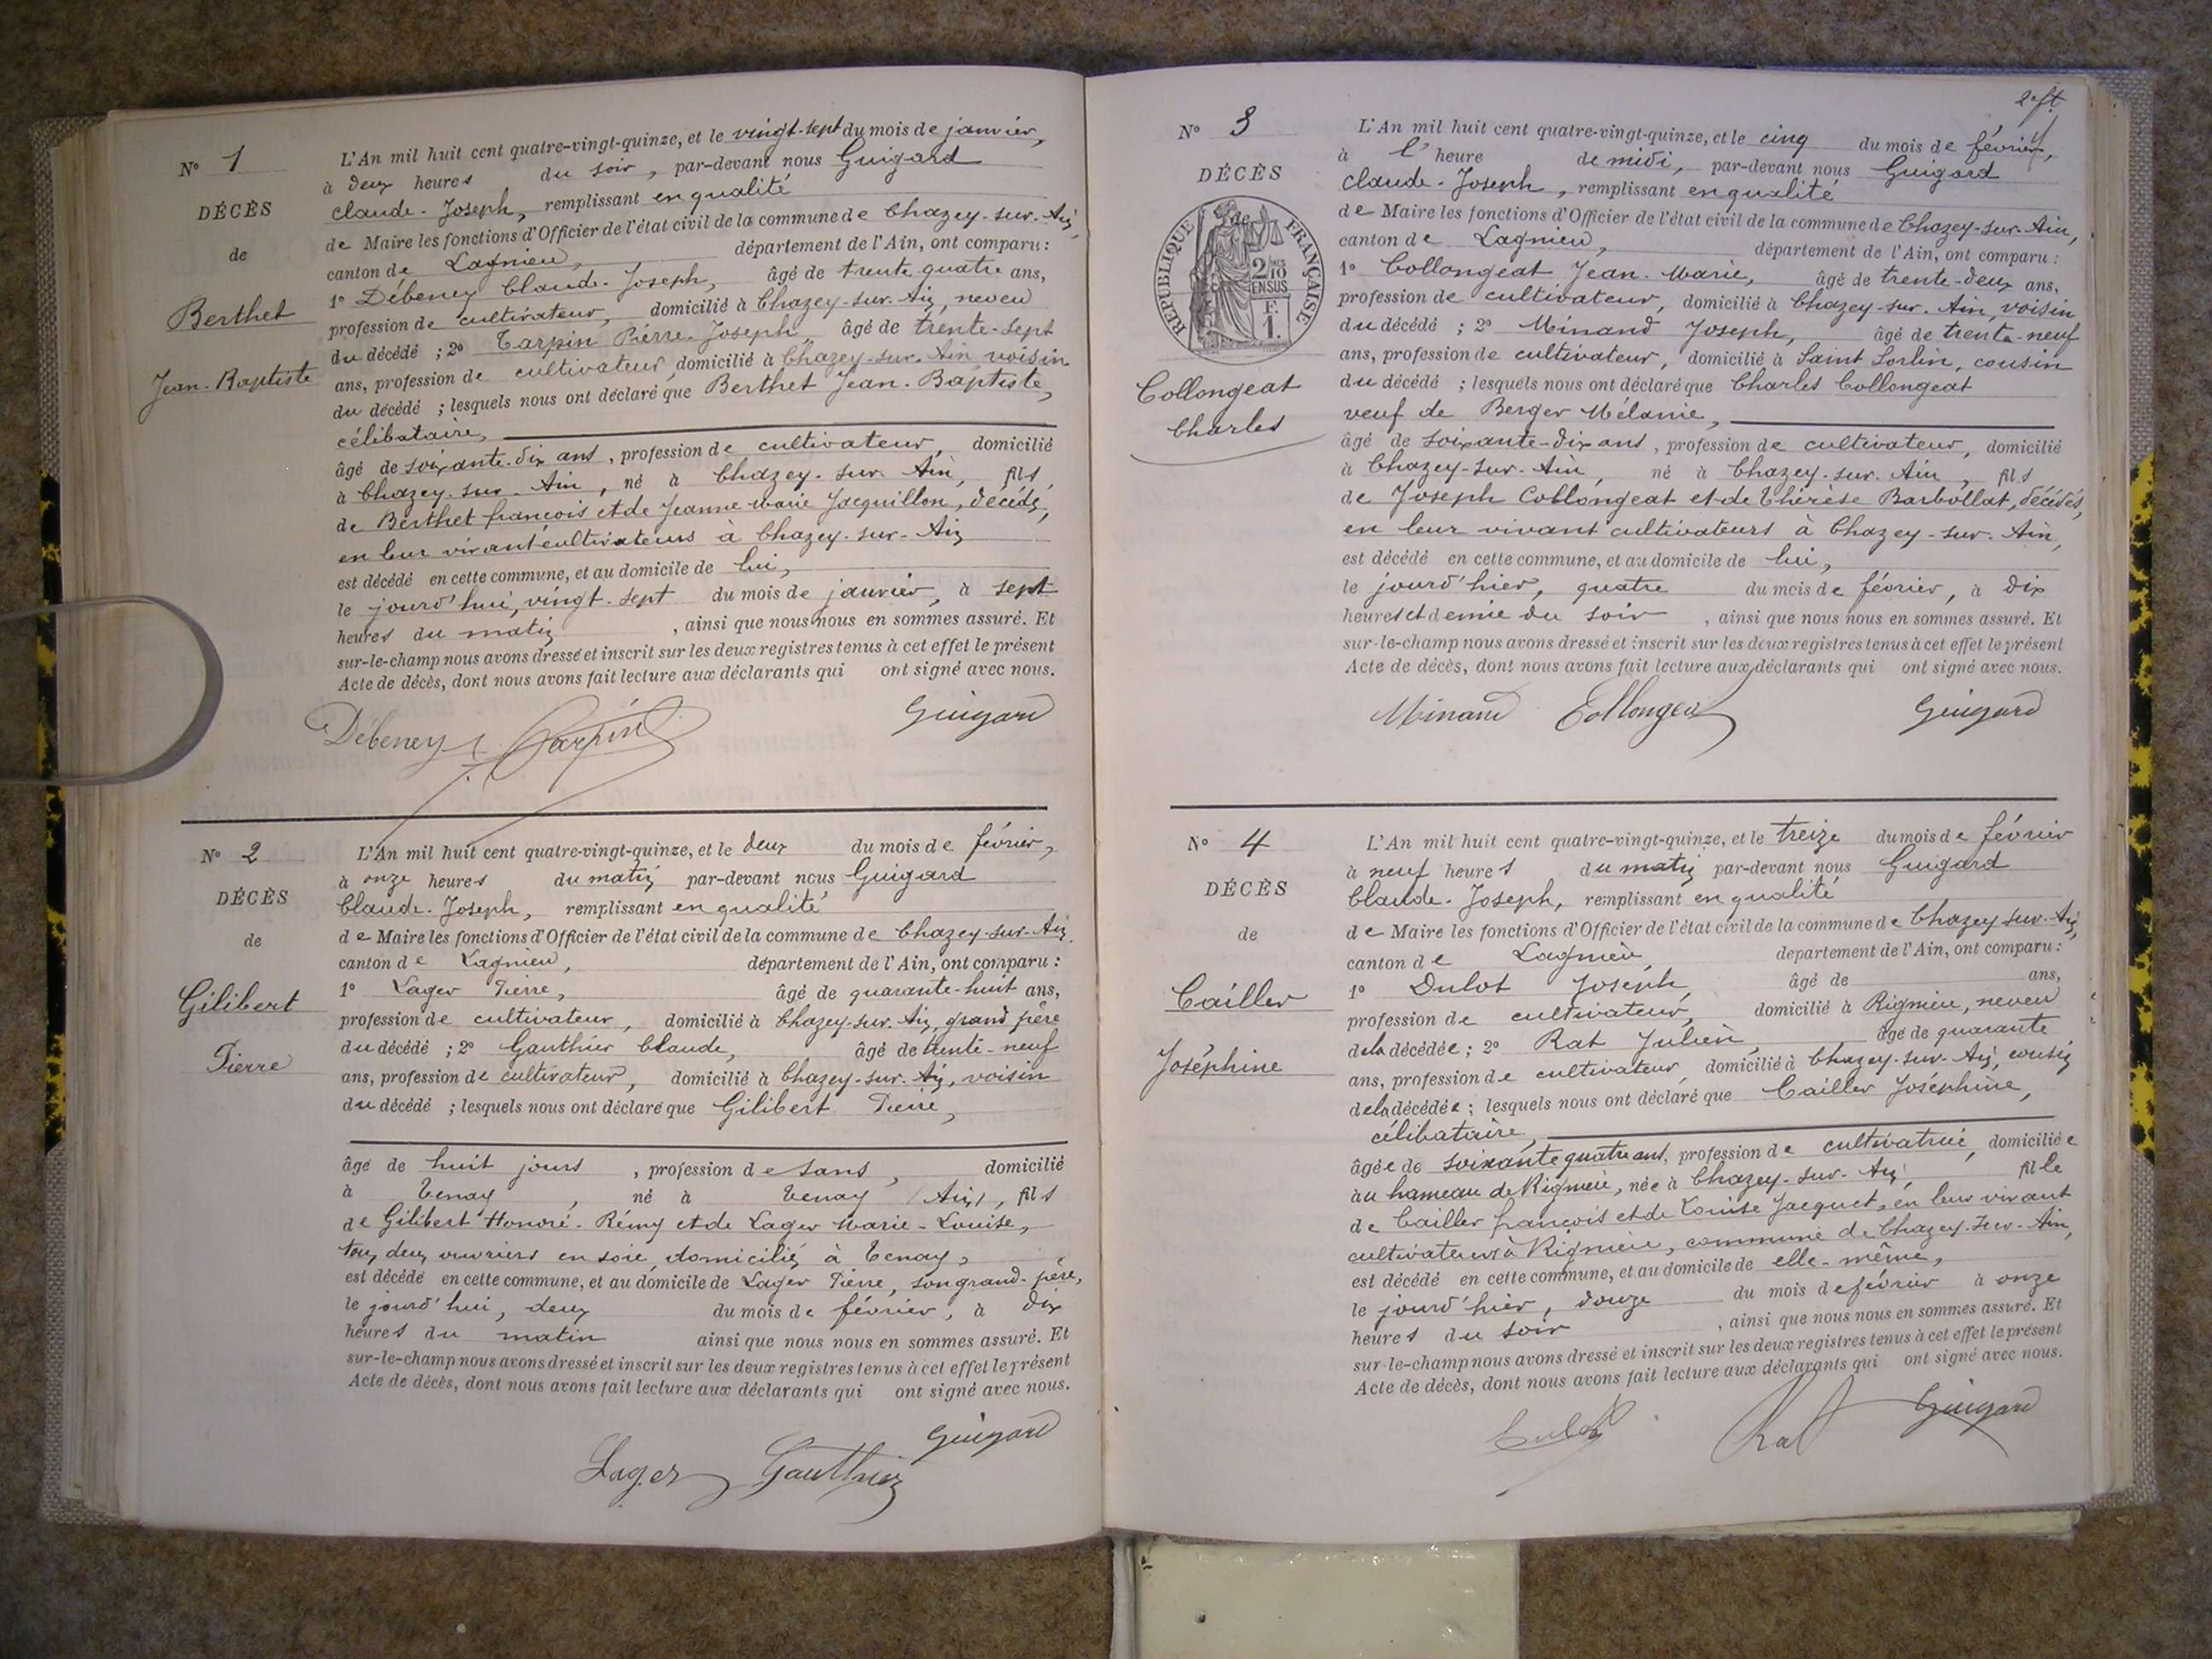 N° 1
DÉCÈS
de
Berthet
Jean-Baptiste
L'An mil huit cent quatre-vingt-quinze, et le vingt-sept du mois de janvier,
à deux heures du soir, par-devant nous Guigard
Claude-Joseph, remplissant en qualité
de Maire les fonctions d'Officier de l'état civil de la commune de Chazey-sur-Ain,
canton de Lagnieu, département de l'Ain, ont comparu :
1° Débeney Claude-Joseph, âgé de trente quatre ans,
profession de cultivateur, domicilié à Chazey-sur-Ain, neveu
du décédé ; 2° Tarpin Pierre-Joseph, âgé de trente-sept
ans, profession de cultivateur, domicilié à Chazey-sur-Ain, voisin
du décédé ; lesquels nous ont déclaré que Berthet Jean-Baptiste,
célibataire,
âgé de soixante-dix ans, profession de cultivateur, domicilié
à Chazey-sur-Ain, né à Chazey-sur-Ain, fils
de Berthet françois et de Jeanne Marie Jacquillon, décédés,
en leur vivant cultivateurs à Chazey-sur-Ain
est décédé en cette commune, et au domicile de lui,
le jourd'hui, vingt-sept du mois de janvier, à sept
heures du matin, ainsi que nous nous en sommes assuré. Et
sur-le-champ nous avons dressé et inscrit sur les deux registres tenus à cet effet le présent
Acte de décès, dont nous avons fait lecture aux déclarants qui ont signé avec nous.
Débeney Tarpin Guigard
N° 2
DÉCÈS
de
Gilibert
Pierre
L'An mil huit cent quatre-vingt-quinze, et le deux du mois de février,
à onze heures du matin par-devant nous Guigard
Claude-Joseph, remplissant en qualité
de Maire les fonctions d'Officier de l'état civil de la commune de Chazey-sur-Ain,
canton de Lagnieu, département de l'Ain, ont comparu :
1° Lager Pierre, âgé de quarante-huit ans,
profession de cultivateur, domicilié à Chazey-sur-Ain, grand père
du décédé ; 2° Gauthier Claude, âgé de trente-neuf
ans, profession de cultivateur, domicilié à Chazey-sur-Ain, voisin
du décédé ; lesquels nous ont déclaré que Gilibert Pierre,
âgé de huit jours, profession de sans, domicilié
à Tenay, né à Tenay (Ain), fils
de Gilibert Honoré-Rémy et de Lager Marie-Louise,
tous deux ouvriers en soie, domiciliés à Tenay,
est décédé en cette commune, et au domicile de Lager Pierre, son grand-père,
le jourd'hui, deux du mois de février, à dix
heures du matin ainsi que nous nous en sommes assuré. Et
sur-le-champ nous avons dressé et inscrit sur les deux registres tenus à cet effet le présent
Acte de décès, dont nous avons fait lecture aux déclarants qui ont signé avec nous.
Lager Gauthier Guigard
2e ft
N° 3
DÉCÈS
de
RÉPUBLIQUE FRANÇAISE
2/10 EN SUS
F. 1.
Collongeat
Charles
L'An mil huit cent quatre-vingt-quinze, et le cinq du mois de février,
à l'heure de midi, par-devant nous Guigard
Claude-Joseph, remplissant en qualité
de Maire les fonctions d'Officier de l'état civil de la commune de Chazey-sur-Ain,
canton de Lagnieu, département de l'Ain, ont comparu :
1° Collongeat Jean-Marie, âgé de trente-deux ans,
profession de cultivateur, domicilié à Chazey-sur-Ain, voisin
du décédé ; 2° Minand Joseph, âgé de trente-neuf
ans, profession de cultivateur, domicilié à Saint Sorlin, cousin
du décédé ; lesquels nous ont déclaré que Charles Collongeat
veuf de Berger Mélanie,
âgé de soixante-dix ans, profession de cultivateur, domicilié
à Chazey-sur-Ain, né à Chazey-sur-Ain, fils
de Joseph Collongeat et de Thérèse Barbollat, décédés,
en leur vivant cultivateurs à Chazey-sur-Ain,
est décédé en cette commune, et au domicile de lui,
le jourd'hier, quatre du mois de février, à dix
heures et demie du soir, ainsi que nous nous en sommes assuré. Et
sur-le-champ nous avons dressé et inscrit sur les deux registres tenus à cet effet le présent
Acte de décès, dont nous avons fait lecture aux déclarants qui ont signé avec nous.
Minand Collongeat Guigard
N° 4
DÉCÈS
de
Cailler
Joséphine
L'An mil huit cent quatre-vingt-quinze, et le treize du mois de février
à neuf heures du matin par-devant nous Guigard
Claude-Joseph, remplissant en qualité
de Maire les fonctions d'Officier de l'état civil de la commune de Chazey-sur-Ain,
canton de Lagnieu, département de l'Ain, ont comparu :
1° Dulot Joseph, âgé de ans,
profession de cultivateur, domicilié à Rignieu, neveu
de la décédée ; 2° Rat Julien, âgé de quarante
ans, profession de cultivateur, domicilié à Chazey-sur-Ain, cousin
de la décédée ; lesquels nous ont déclaré que Cailler Joséphine,
célibataire,
âgée de soixante quatre ans, profession de cultivatrice, domiciliée
au hameau de Rignieu, née à Chazey-sur-Ain, fille
de Cailler françois et de Louise Jacquet, en leur vivant
cultivateurs à Rignieu, commune de Chazey-sur-Ain,
est décédé en cette commune, et au domicile de elle-même,
le jourd'hier, douze du mois de février à onze
heures du soir, ainsi que nous nous en sommes assuré. Et
sur-le-champ nous avons dressé et inscrit sur les deux registres tenus à cet effet le présent
Acte de décès, dont nous avons fait lecture aux déclarants qui ont signé avec nous.
Dulot Rat Guigard